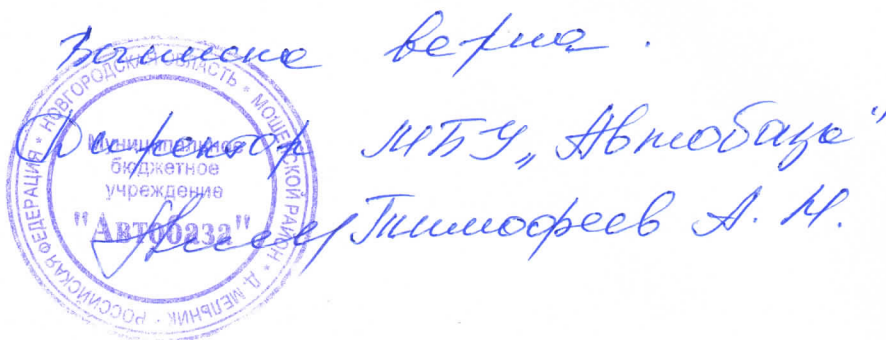 Выписка верна.
Директор МБУ „Автобаза"
Тимофеев А. Н.
РОССИЙСКАЯ ФЕДЕРАЦИЯ * НОВГОРОДСКАЯ ОБЛАСТЬ * МОШЕНСКОЙ РАЙОН * Д. МЕЛЬНИК *
Муниципальное
бюджетное
учреждение
"Автобаза"